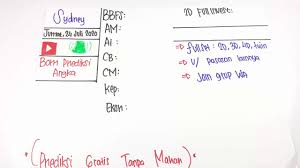 Sydney
Jumat, 24 Juli 2020
Bom Prediksi
Angka
BBFS:
AM:
AI:
CB:
CM:
Kep:
Ekor:
2D Fullinvest:
⇒ fullset : 2D, 3D, 4D, twin
⇒ u/ pasaran lainnya
⇒ Join grup WA
*(Prediksi Gratis Tanpa Mahar)*